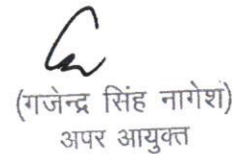 (गजेन्द्र सिंह नागेश)
अपर आयुक्त